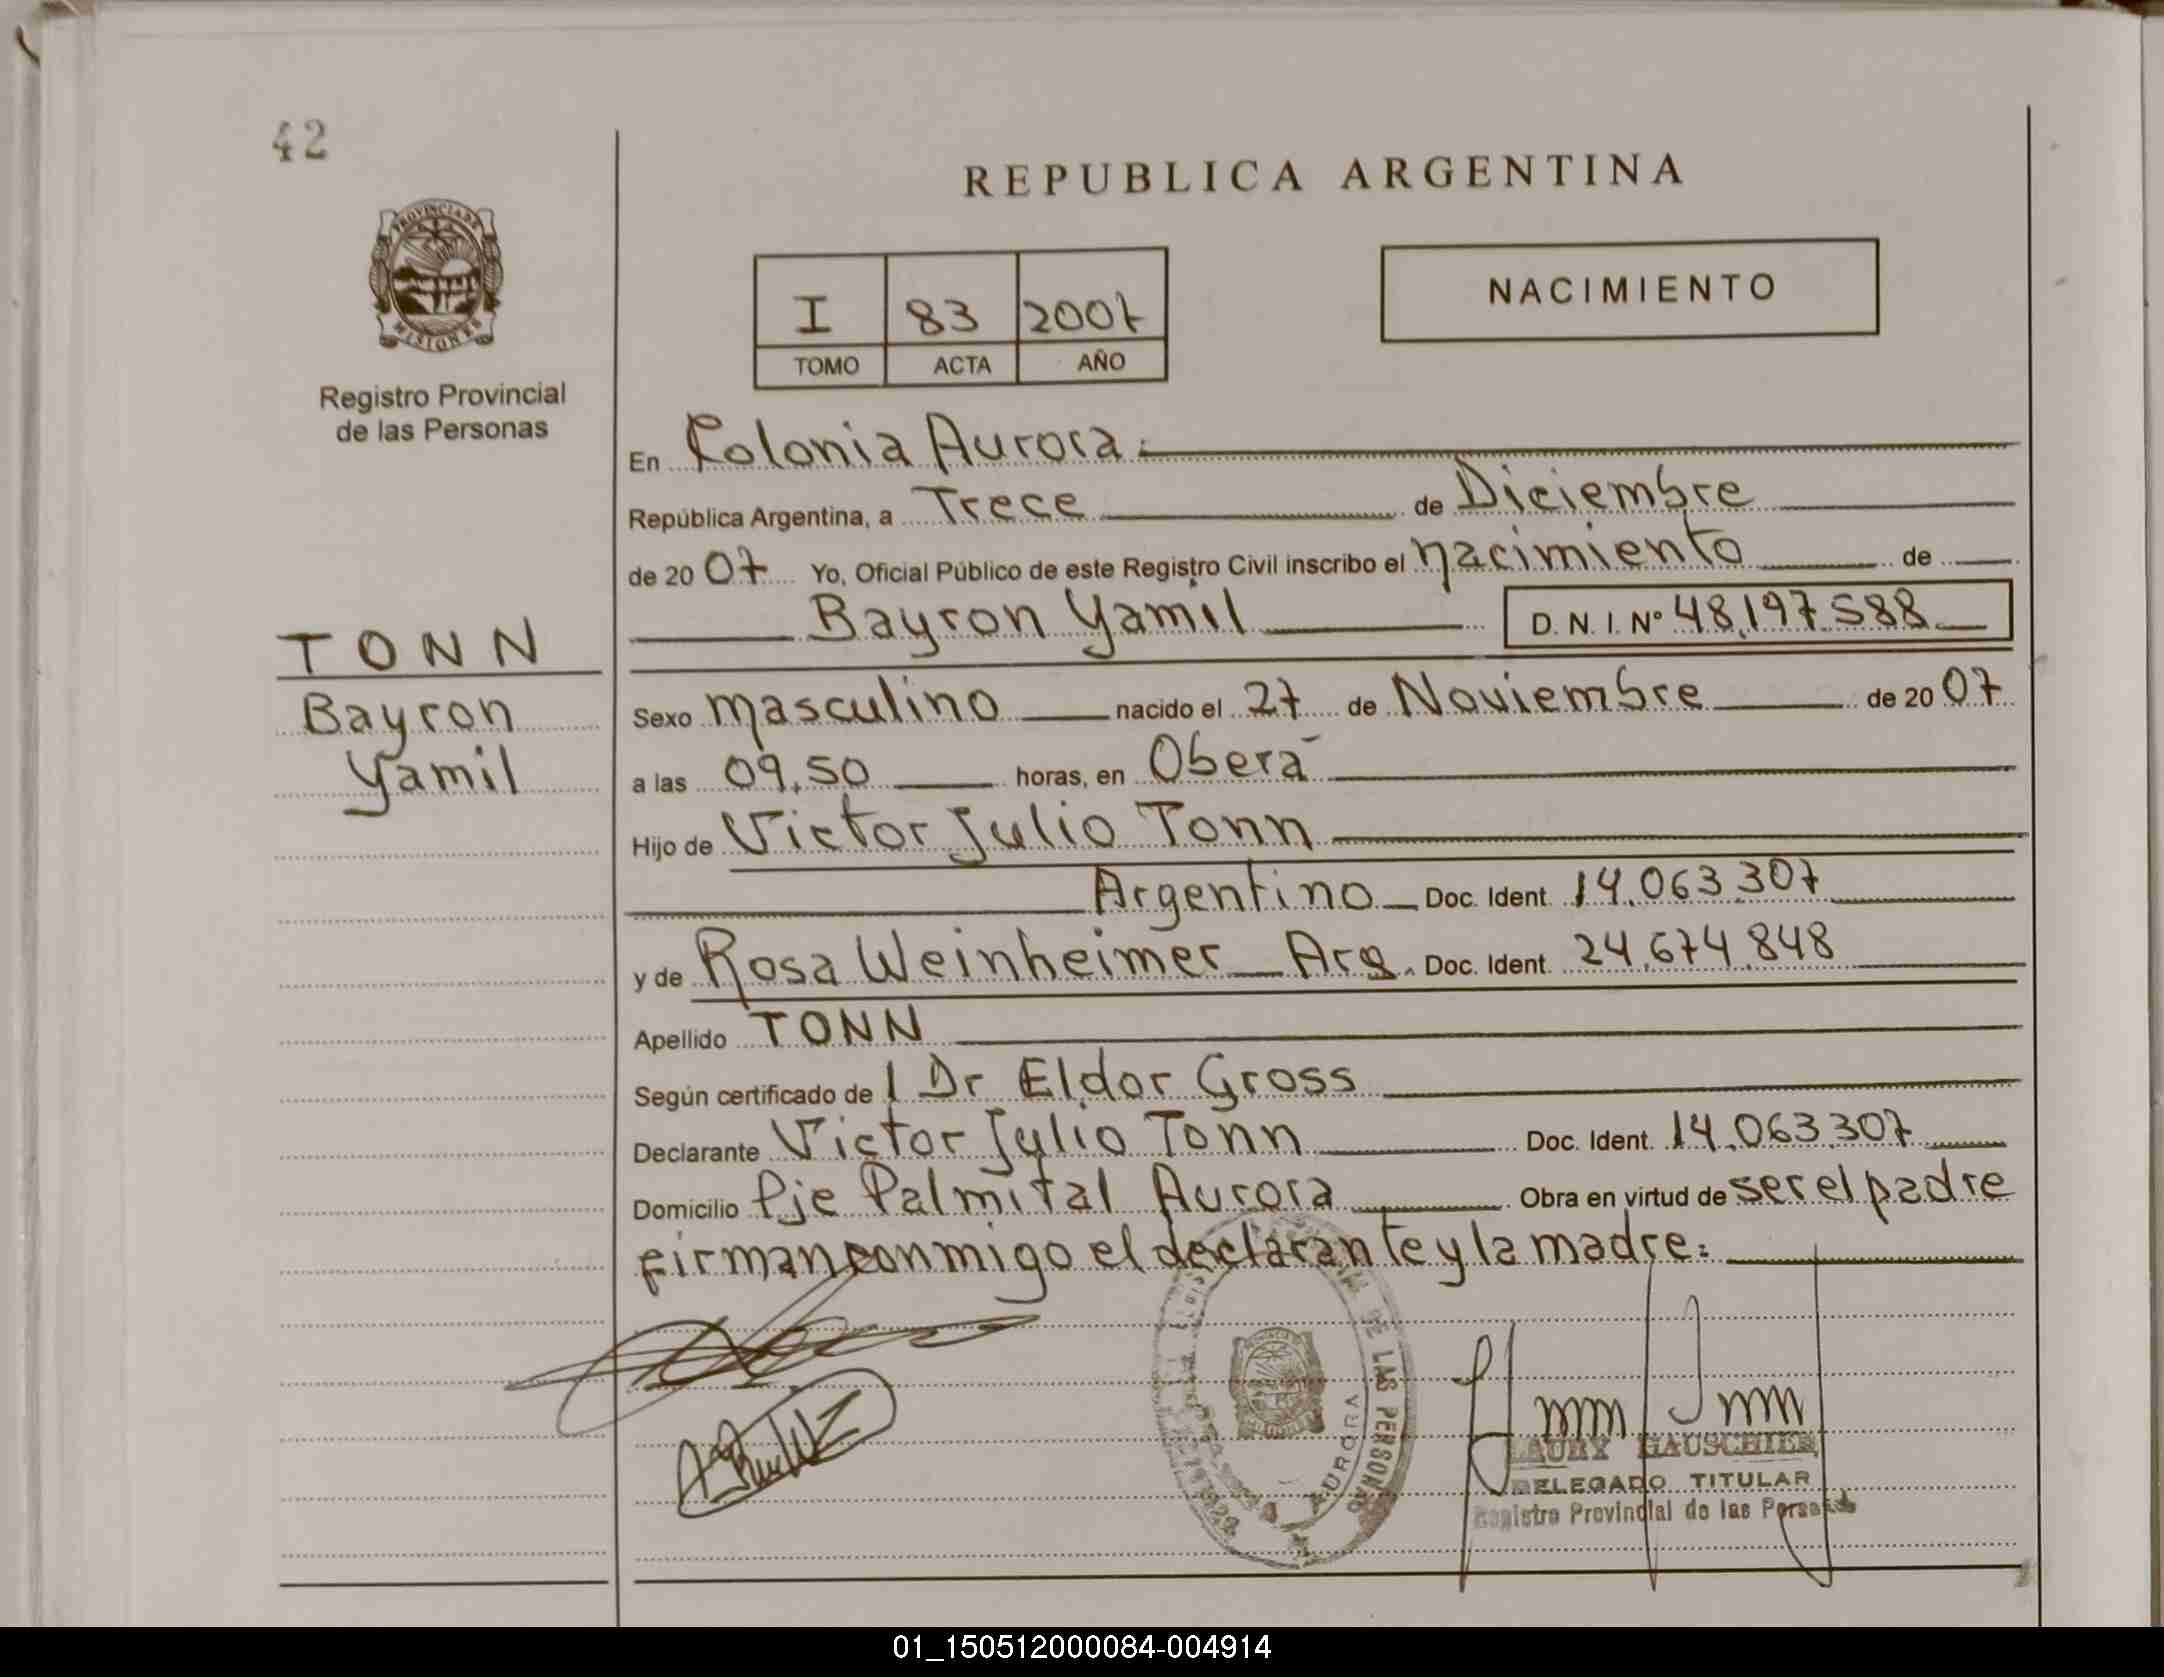 42
REPUBLICA ARGENTINA
PROVINCIA DE
MISIONES
Registro Provincial
de las Personas
I 83 2007
TOMO ACTA AÑO
NACIMIENTO
En Colonia Aurora.
República Argentina, a Trece de Diciembre
de 2007 Yo, Oficial Público de este Registro Civil inscribo el nacimiento de
Bayron Yamil D.N.I. Nº 48,197.588
TONN
Bayron
Yamil
Sexo masculino nacido el 27 de Noviembre de 2007
a las 09,50 horas, en Oberá
Hijo de Victor Julio Tonn
Argentino Doc. Ident. 14.063.307
y de Rosa Weinheimer Arg. Doc. Ident. 24.674.848
Apellido TONN
Según certificado de l Dr Eldor Gross
Declarante Victor Julio Tonn Doc. Ident. 14.063.307
Domicilio Pje Palmital Aurora Obra en virtud de ser el padre
firman conmigo el declarante y la madre:
DE LAS PERSONAS
AURORA
LAURY HAUSCHIER
DELEGADO TITULAR
Registro Provincial de las Personas
01_150512000084-004914